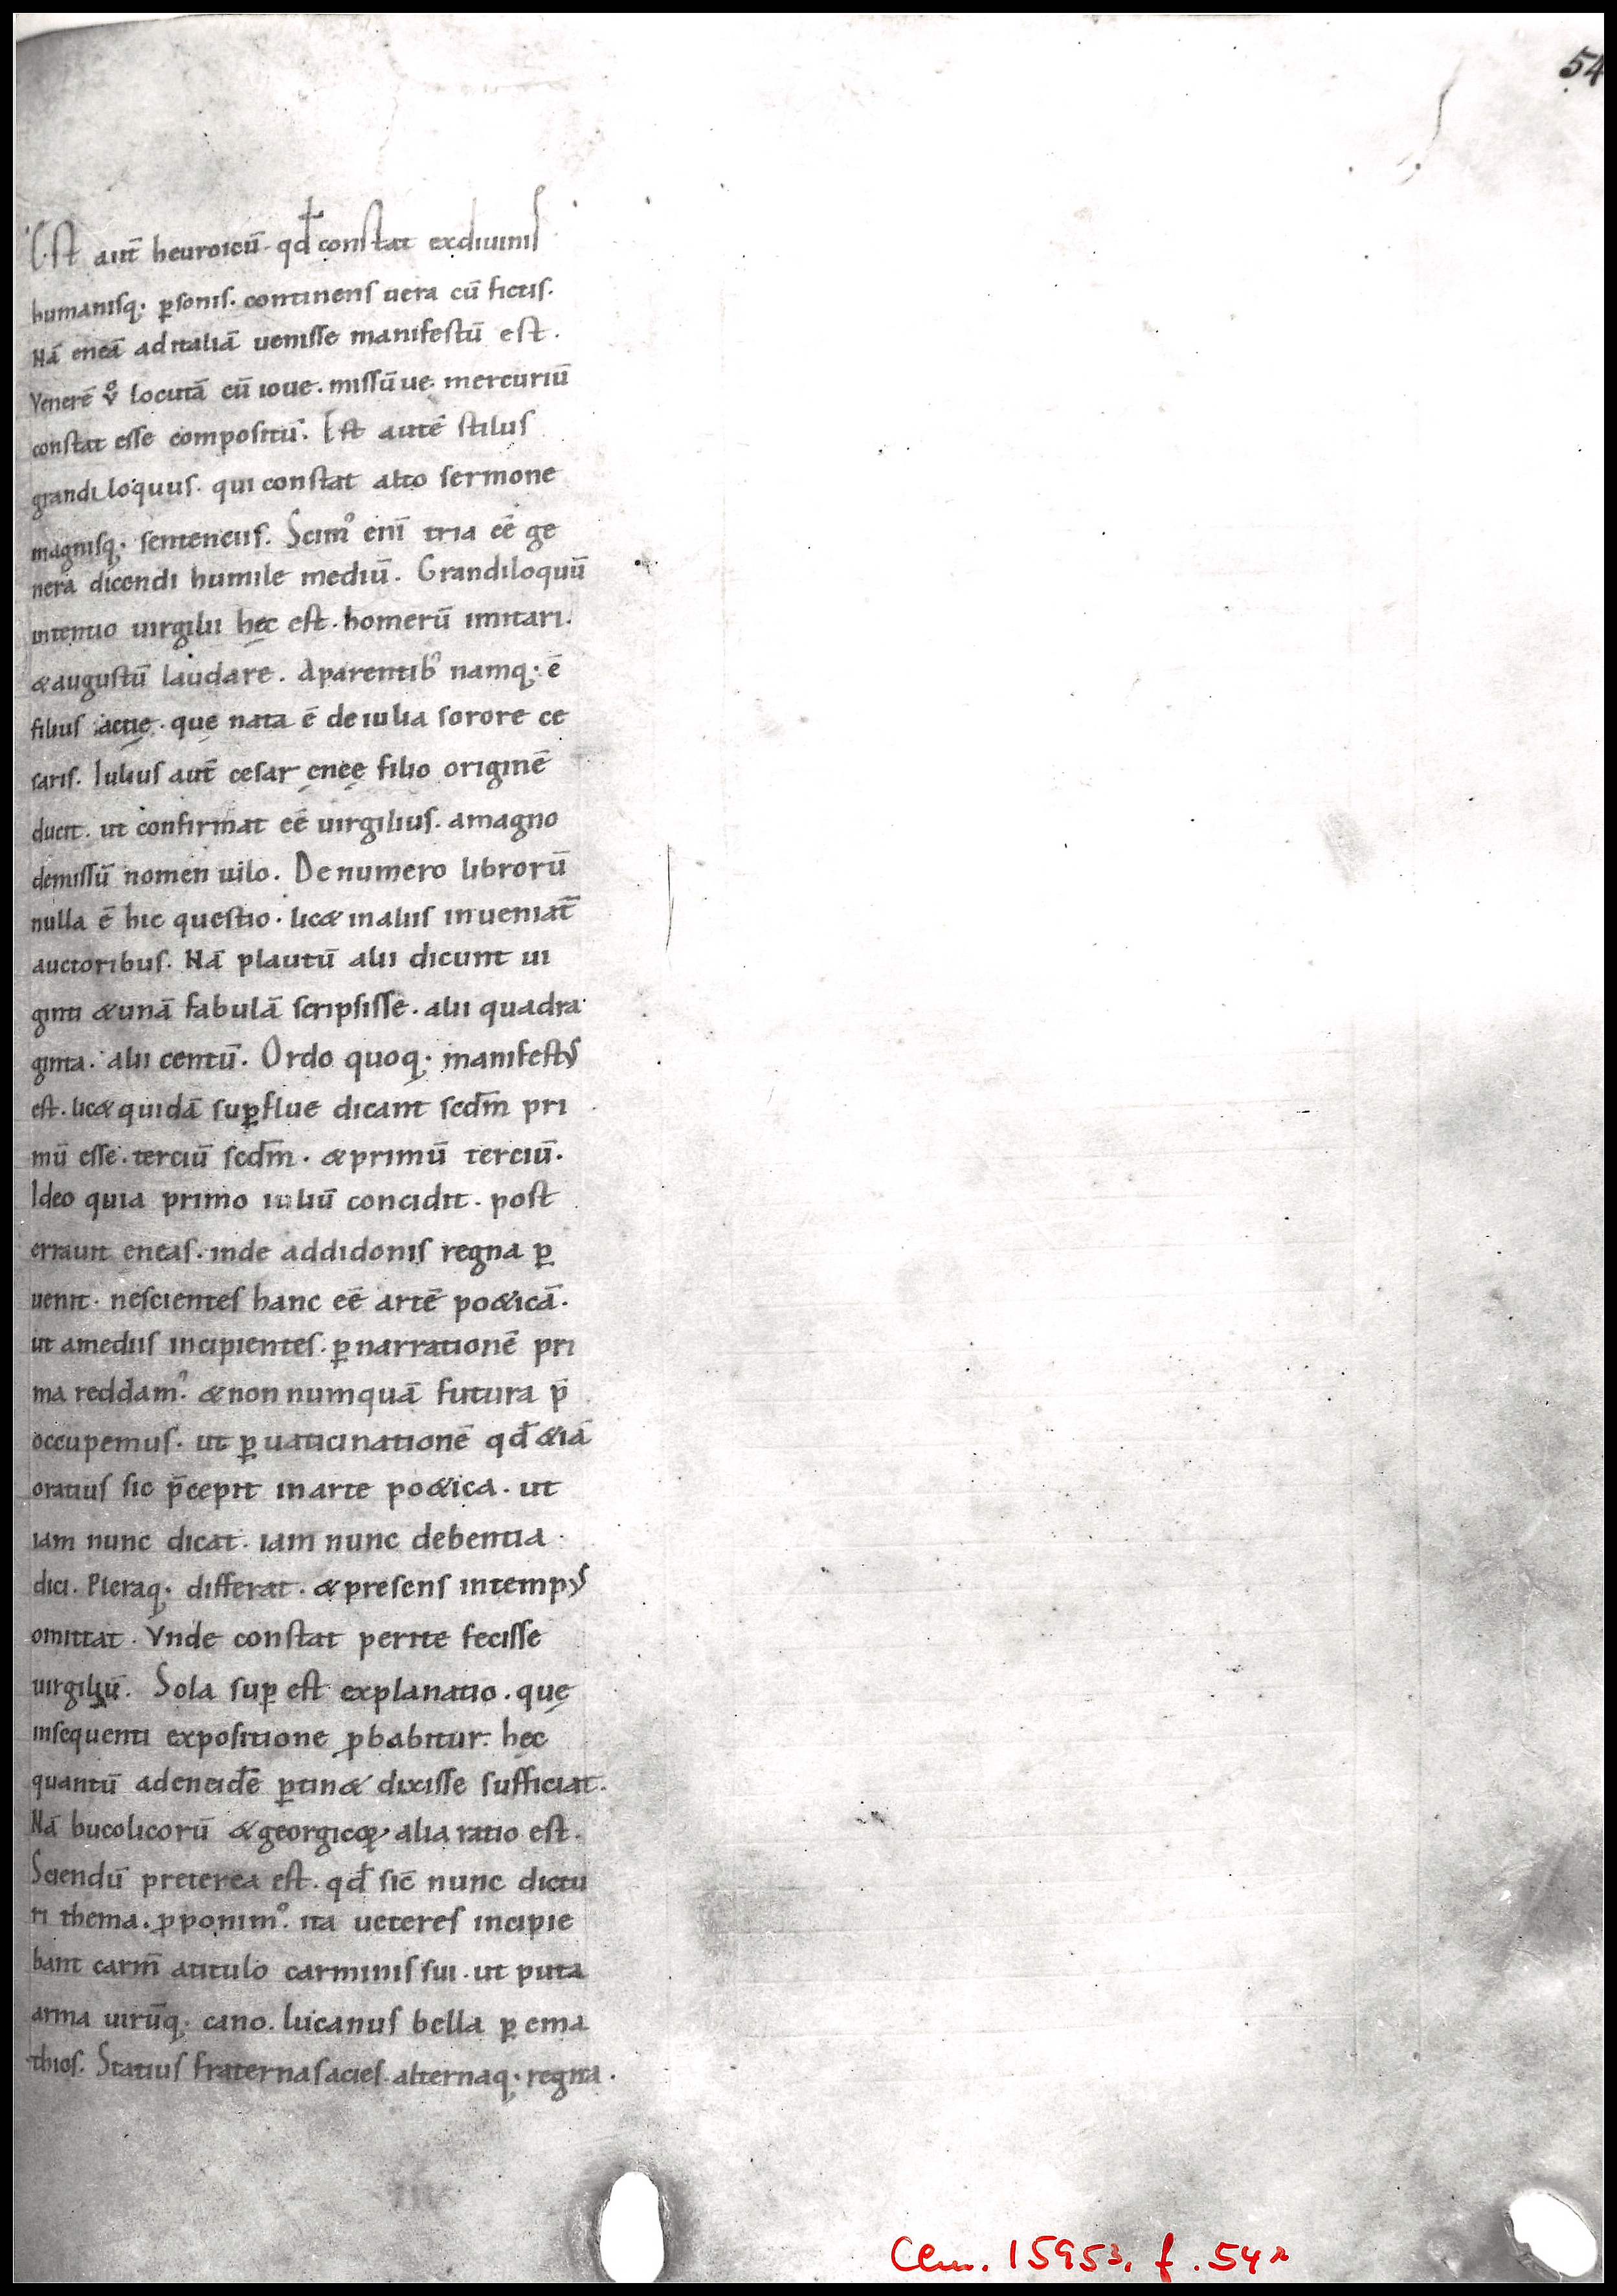 54
Est aut̄ heuroicū. qđ constat exdiuinis
humanisq;. ꝑsonis. continens uera cū fictis.
Nā eneā aditaliā uenisse manifestū est.
Venerē v̊ locutā cū ioue. missū ue mercuriū
constat esse compositū. Est autē stilus
grandiloquus. qui constat alto sermone
magnisq;. sentenciis. Scimꝰ enī tria eē ge
nera dicendi humile mediū. Grandiloquū
intentio uirgilii hęc est. homerū imitari.
&augustū laudare. Aparentibꝰ namq;. ē
filius actię. quę nata ē de iulia sorore ce
saris. Iulius aut̄ cesar ęnęę filio originē
ducit. ut confirmat eē uirgilius. amagno
demissū nomen uilo. Denumero librorū
nulla ē hic questio. lic& inaliis inueniat̄
auctoribus. Nā plautū alii dicunt ui
ginti &unā fabulā scripsisse. alii quadra
ginta. alii centū. Ordo quoq;. manifestꝰ
est. lic& quidā suꝑflue dicant scdm̄ pri
mū esse. terciū scdm̄. &primū terciū.
Ideo quia primo iuliū concidit. post
errauit eneas. inde addidonis regna ꝑ
uenit. nescientes hanc eē artē po&icā.
ut amediis incipientes. ꝑnarrationē pri
ma reddamꝰ. &non numquā futura p̄
occupemus. ut ꝑuaticinationē qđ &iā
oratius sic p̄cepit inarte po&ica. ut
iam nunc dicat. iam nunc debentia
dici. Pleraq;. differat. &presens intempꝰ
omittat. Vnde constat perite fecisse
uirgiliū. Sola suꝑ est explanatio. quę
insequenti expositione ꝓbabitur. hęc
quantū adeneidē ꝑtin& dixisse sufficiat.
Nā bucolicorū &georgicoꝝ. alia ratio est.
Sciendū preterea est. qđ sic̄ nunc dictu
ri thema. ꝓponimꝰ. ita ueteres incipie
bant carm̄ atitulo carminis sui. ut puta
arma uirūq;. cano. lucanus bella ꝑ ema
thios. Statius fraternas acies. alternaq;. regna.
Clm. 15953, f. 54r